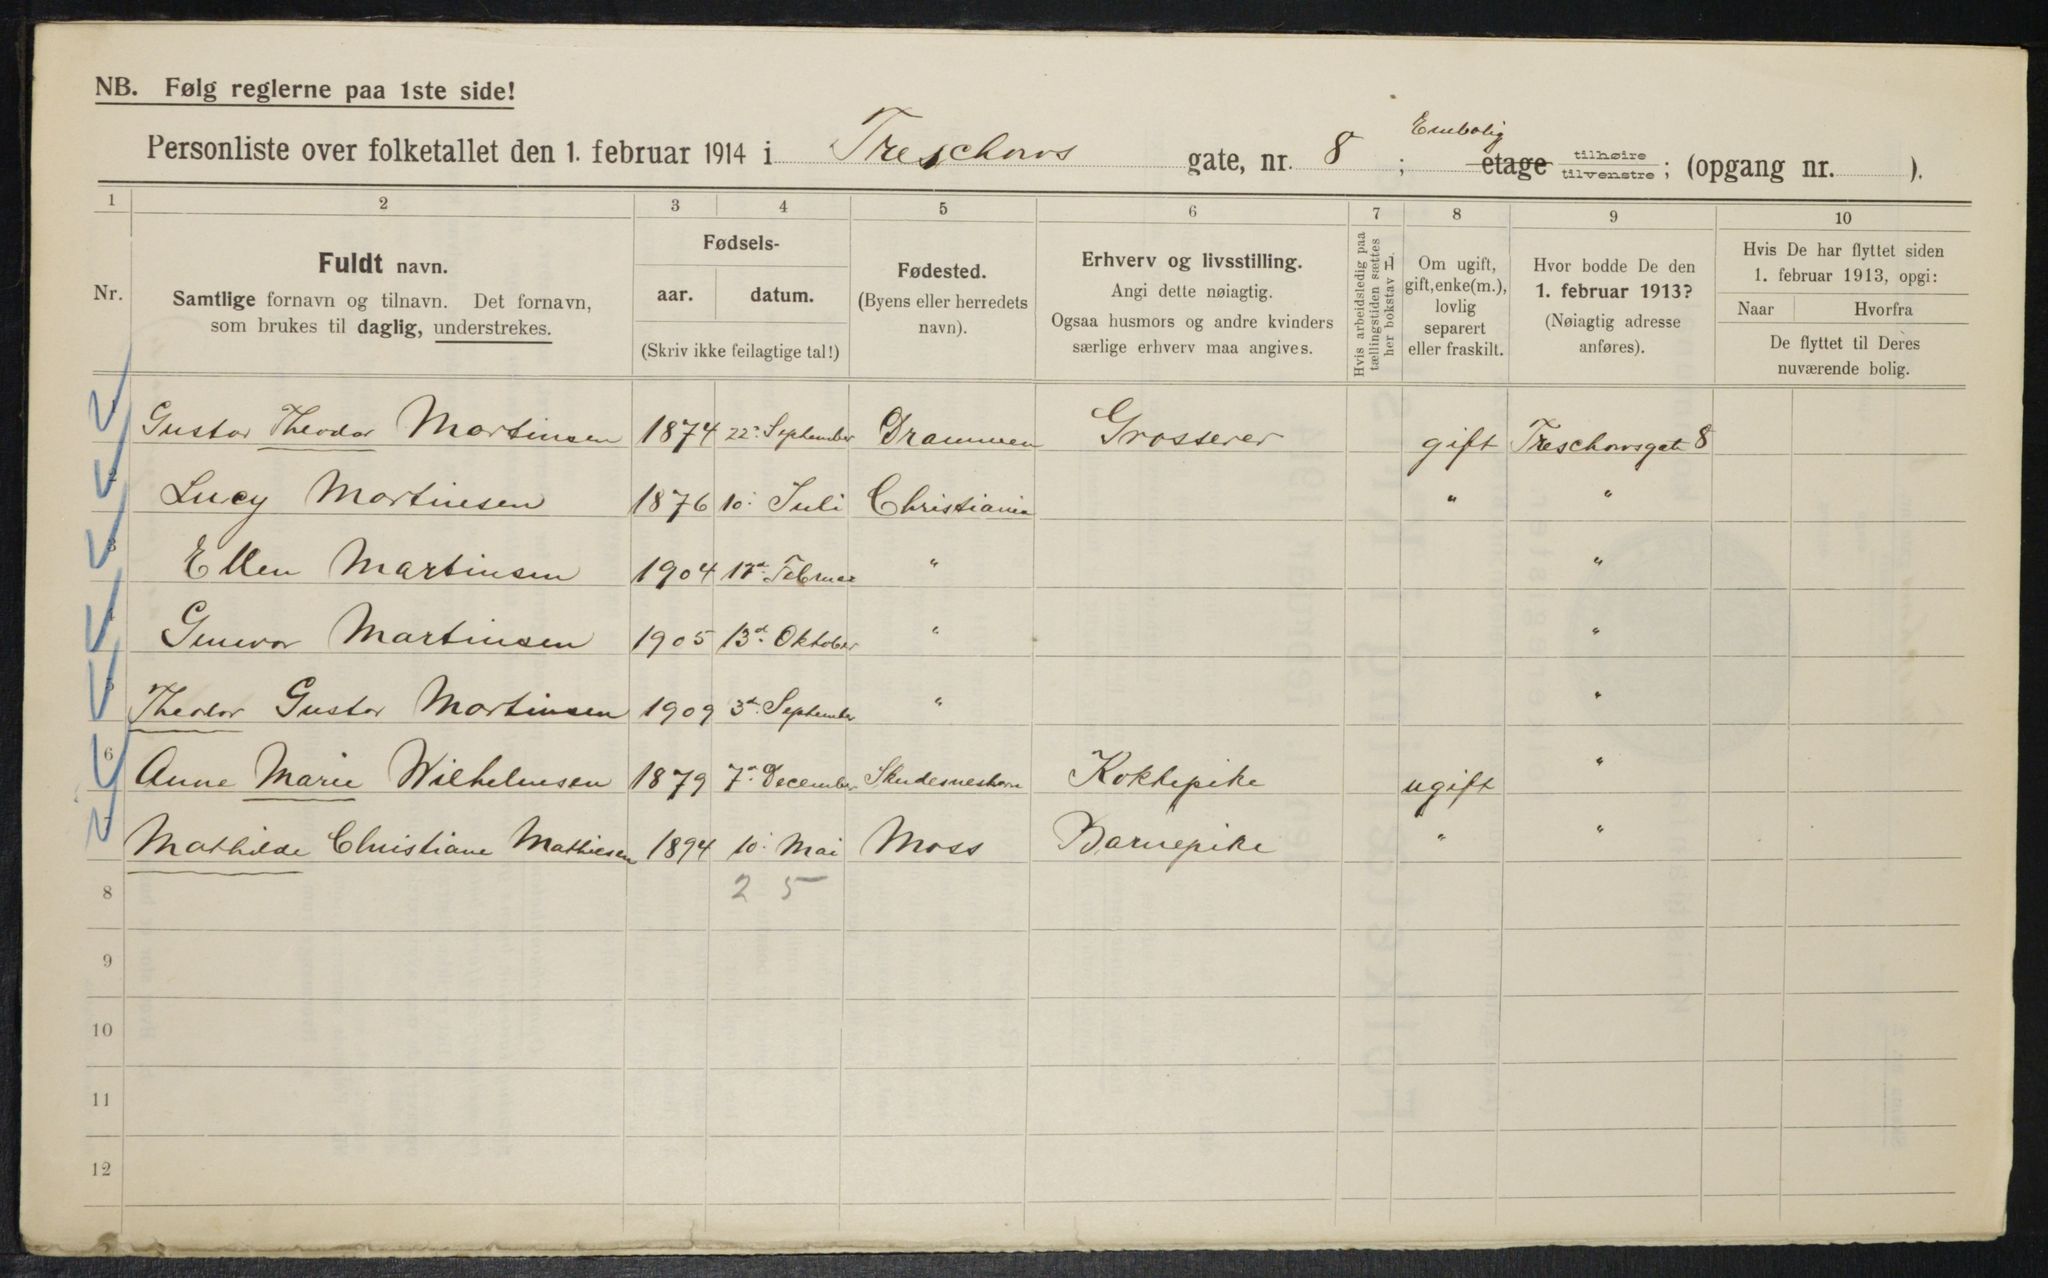 NB. Følg reglerne paa 1ste side!
Enebolig
Personliste over folketallet den 1. februar 1914 i Treschows gate, nr. 8; etage tilhøire tilvenstre; (opgang nr. ).
1 2 3 4 5 6 7 8 9 10
Nr.
Fuldt navn.
Samtlige fornavn og tilnavn. Det fornavn,
som brukes til daglig, understrekes.
Fødsels-
aar. datum.
(Skriv ikke feilagtige tal!)
Fødested.
(Byens eller herredets
navn).
Erhverv og livsstilling.
Angi dette nøiagtig.
Ogsaa husmors og andre kvinders
særlige erhverv maa angives.
Hvis arbeidsledig paa
tællingstiden sættes
her bokstav L
Om ugift,
gift, enke(m.),
lovlig
separert
eller fraskilt.
Hvor bodde De den
1. februar 1913?
(Nøiagtig adresse
anføres).
Hvis De har flyttet siden
1. februar 1913, opgi:
Naar Hvorfra
De flyttet til Deres
nuværende bolig.
1 Gustav Theodor Martinsen 1874 22. September Drammen Grosserer gift Treschowsgate 8
2 Lucy Martinsen 1876 10. Juli Christiania " "
3 Ellen Martinsen 1904 17d. Februar " "
4 Gunvor Martinsen 1905 13d. Oktober " "
5 Theodor Gustav Martinsen 1909 3d. September " "
6 Anne Marie Wilhelmsen 1879 7d. December Skudesneshavn Kokkepike ugift "
7 Mathilde Christiane Mathiesen 1894 10. Mai Moss Barnepike " "
8 2 5
9
10
11
12